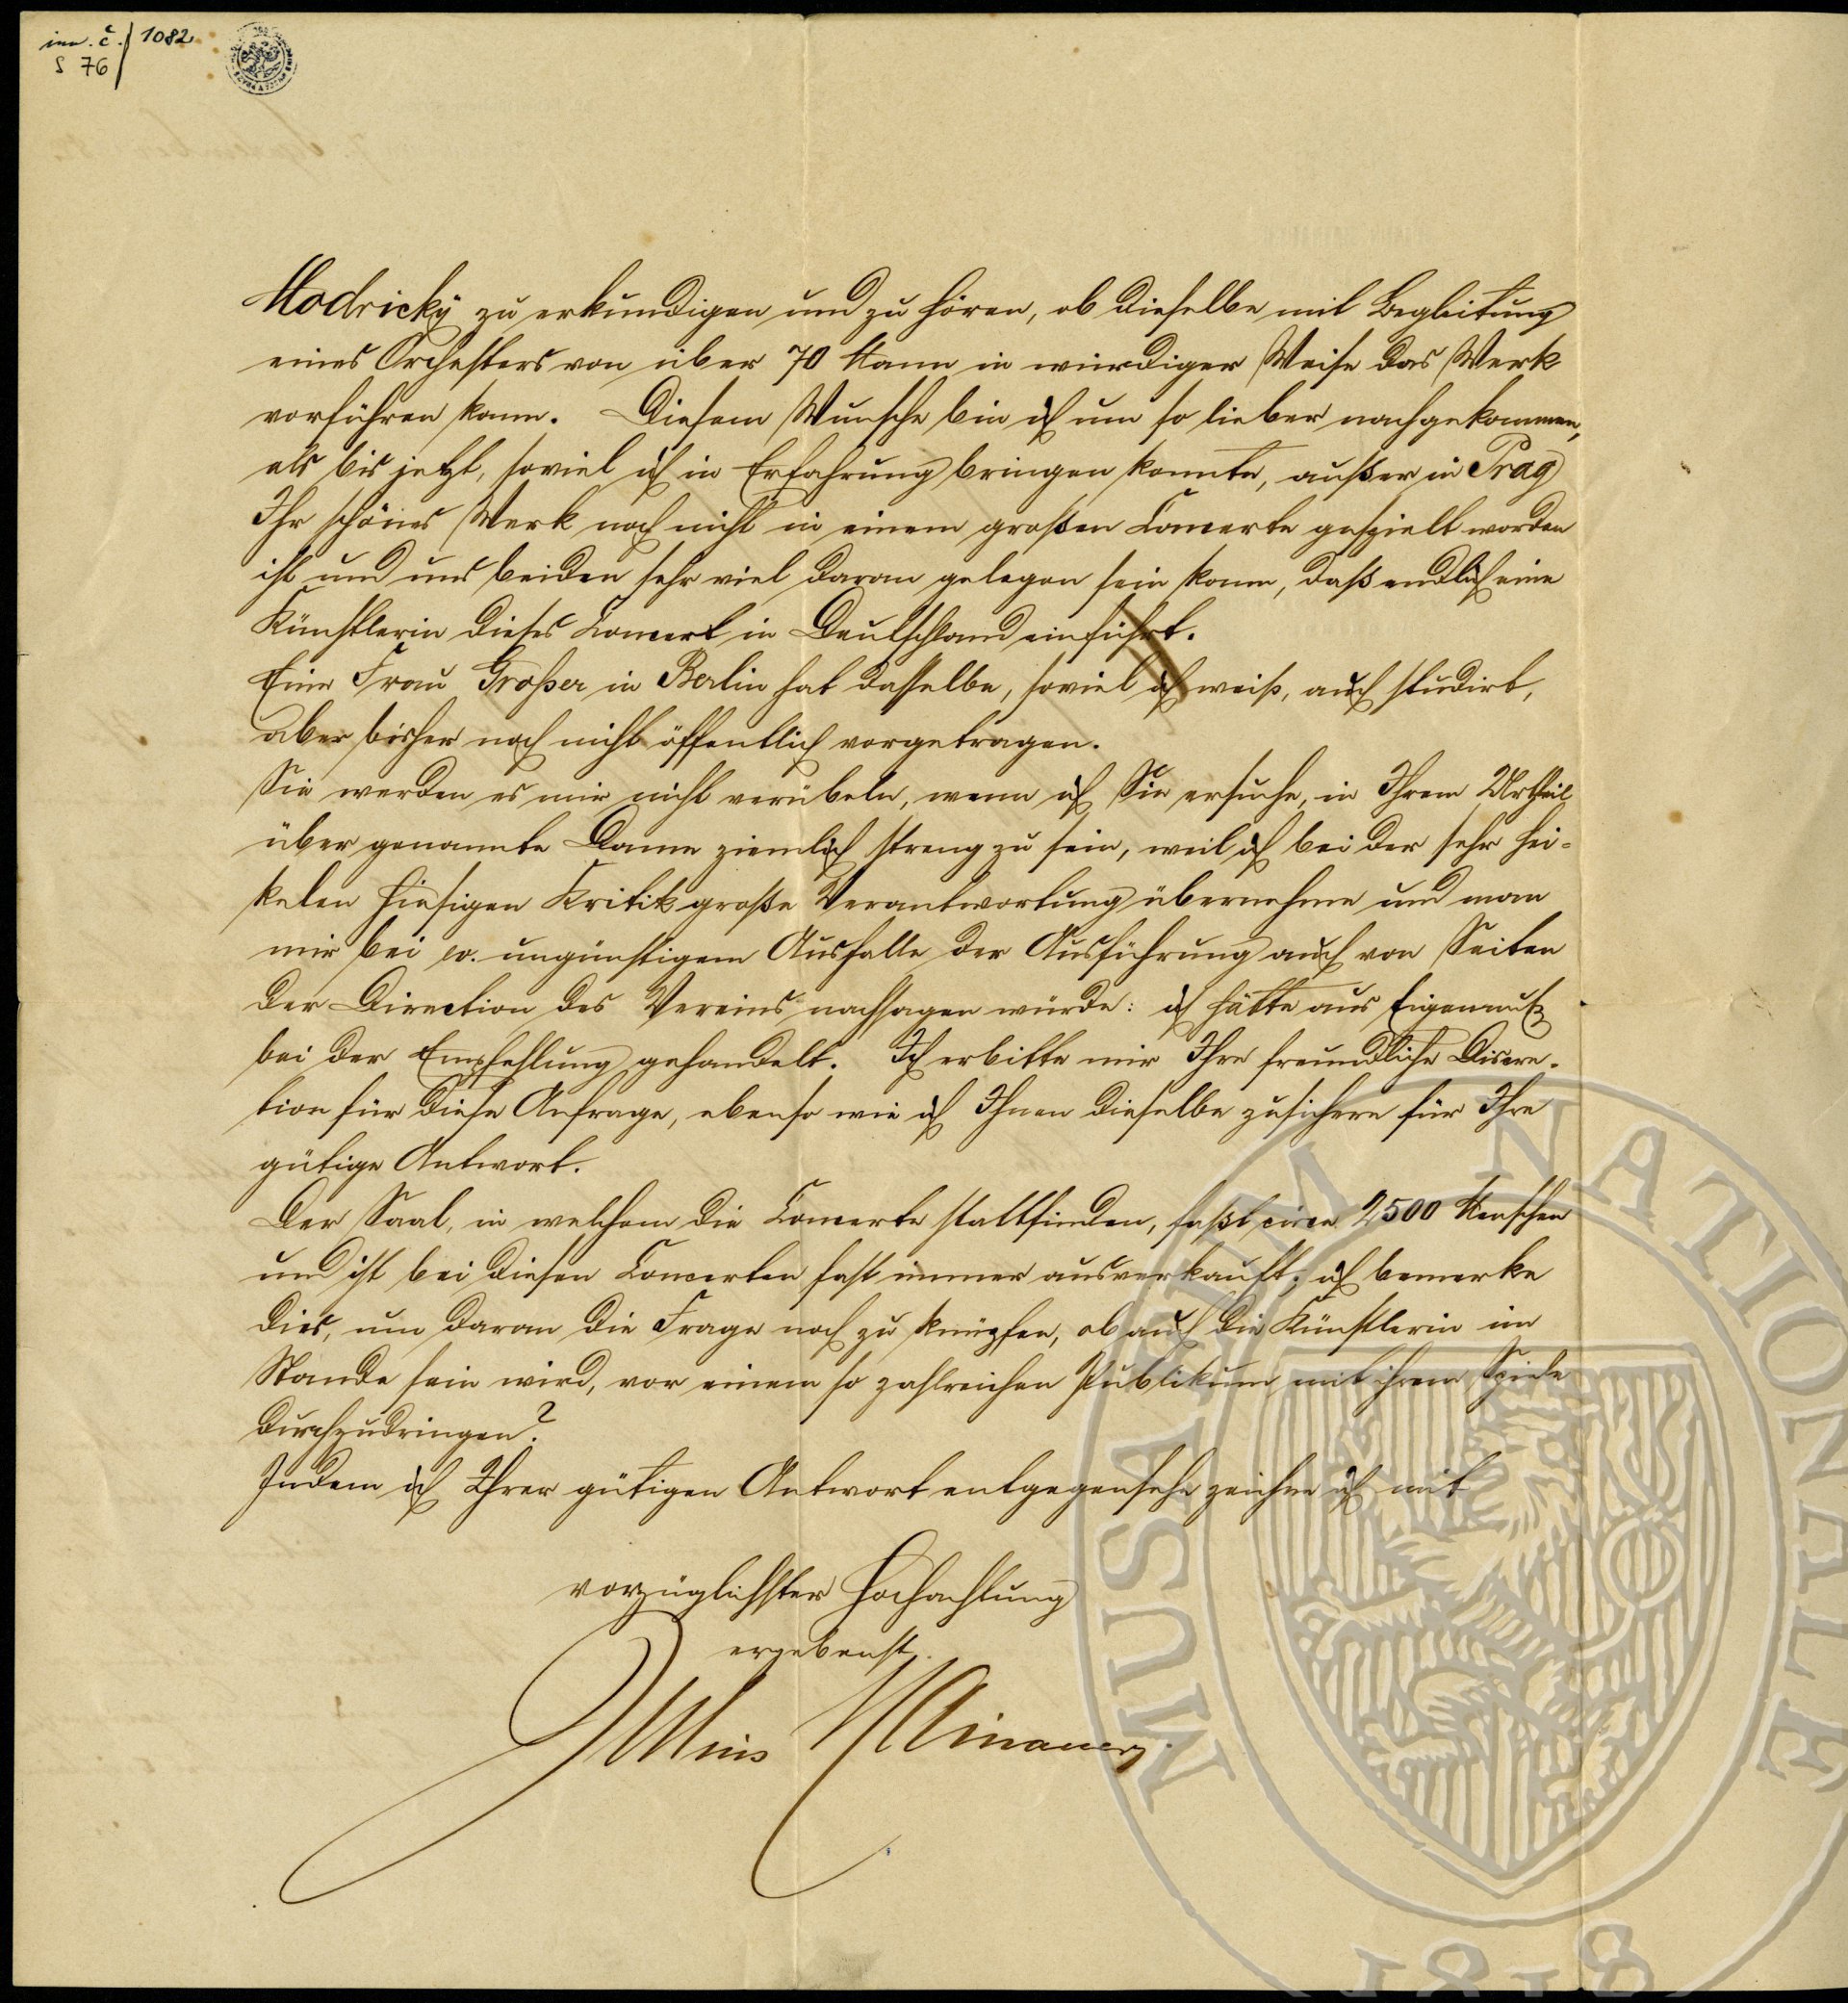 inv. č. 1082
S 76
Modricky zu erkundigen und zu hören, ob dieselbe mit Begleitung
eines Orchesters von über 70 Mann in würdiger Weise das Werk
vorführen kann. Diesem Wunsche bin ich um so lieber nachgekommen,
als bis jetzt, soviel ich in Erfahrung bringen konnte, außer in Prag
Ihr schönes Werk noch nicht in einem großen Concerte gespielt worden
ist und uns beiden sehr viel daran gelegen sein kann, daß endlich eine
Künstlerin dieses Concert in Deutschland einführt.
Eine Frau Großer in Berlin hat dasselbe, soviel ich weiß, auch studirt,
aber bisher noch nicht öffentlich vorgetragen.
Sie werden es mir nicht verübeln, wenn ich Sie ersuche, in Ihrem Urtheil
über genannte Dame ziemlich streng zu sein, weil ich bei der sehr hei-
kelen hiesigen Kritik große Verantwortung übernehme und man
mir bei ev. ungünstigem Ausfalle der Ausführung auch von Seiten
der Direction des Vereins nachsagen würde: ich hätte aus Eigennutz
bei der Empfehlung gehandelt. Ich erbitte mir Ihre freundliche Discre-
tion für diese Anfrage, ebenso wie ich Ihnen dieselbe zusichere für Ihre
gütige Antwort.
Der Saal, in welchem die Concerte stattfinden, faßt circa 2500 Menschen
und ist bei diesen Concerten fast immer ausverkauft; ich bemerke
dies, um daran die Frage noch zu knüpfen, ob auch die Künstlerin im
Stande sein wird, vor einem so zahlreichen Publikum mit ihrem Spiele
durchzudringen?
Indem ich Ihrer gütigen Antwort entgegensehe zeichne ich mit
vorzüglichster Hochachtung
ergebenst
Julius Hainauer
MUSAEUM NATIONALE
1818